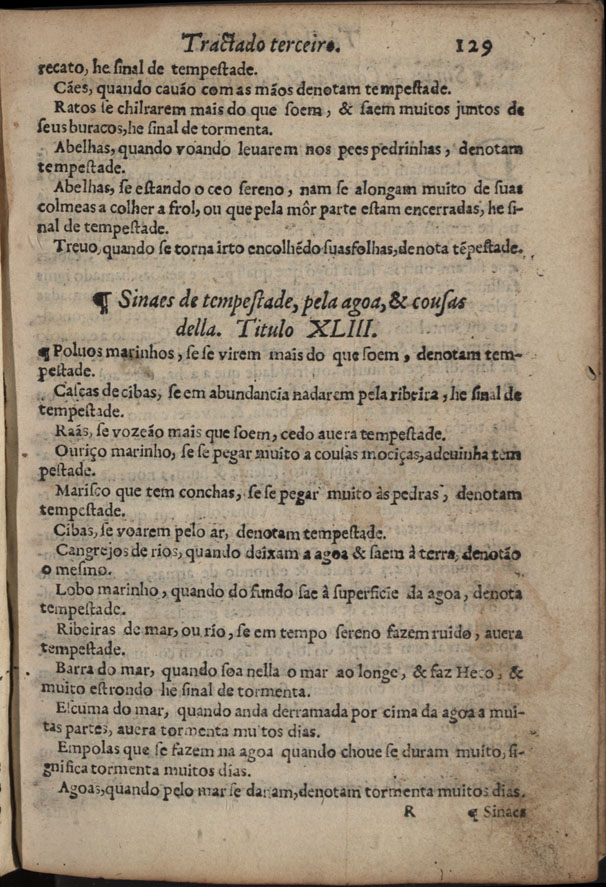 Tractado terceiro. 129
recato, he ſinal de tempeſtade.
Cães, quando cauão com as mãos denotam tempeſtade.
Ratos ſe chilrarem mais do que ſoem, & ſaem muitos juntos de
ſeus buracos, he ſinal de tormenta.
Abelhas, quando voando leuarem nos pees pedrinhas, denotam
tempeſtade.
Abelhas, ſe eſtando o ceo ſereno, nam ſe alongam muito de ſuas
colmeas a colher a frol, ou que pela môr parte eſtam encerradas, he ſi-
nal de tempeſtade.
Treuo, quando ſe torna irto encolhẽdo ſuas folhas, denota tẽpeſtade.
¶ Sinaes de tempeſtade, pela agoa, & couſas
della. Titulo XLIII.
¶ Poluos marinhos, ſe ſe virem mais do que ſoem, denotam tem-
peſtade.
Caſças de cibas, ſe em abundancia nadarem pela ribeira, he ſinal de
tempeſtade.
Raãs, ſe vozeão mais que ſoem, cedo auera tempeſtade.
Ouriço marinho, ſe ſe pegar muito a couſas mociças, adeuinha tem
peſtade.
Mariſco que tem conchas, ſe ſe pegar muito às pedras, denotam
tempeſtade.
Cibas, ſe voarem pelo ar, denotam tempeſtade.
Cangrejos de rios, quando deixam a agoa & ſaem à terra, denotão
o meſmo.
Lobo marinho, quando do fundo ſae à ſuperficie da agoa, denota
tempeſtade.
Ribeiras de mar, ou río, ſe em tempo ſereno fazem ruido, auera
tempeſtade.
Barra do mar, quando ſoa nella o mar ao longe, & faz Heco, &
muito eſtrondo he ſinal de tormenta.
Eſcuma do mar, quando anda derramada por cima da agoa a mui-
tas partes, auera tormenta muitos dias.
Empolas que ſe fazem na agoa quando choue ſe duram muito, ſi-
gnifica tormenta muitos dias.
Agoas, quando pelo mar ſe danam, denotam tormenta muitos dias.
R ¶ Sinaes